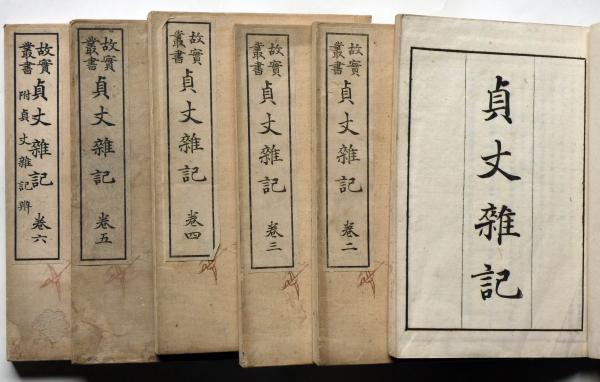 貞丈雜記
故實叢書 貞丈雜記 卷二
故實叢書 貞丈雜記 卷三
故實叢書 貞丈雜記 卷四
故實叢書 貞丈雜記 卷五
故實叢書 貞丈雜記 附貞丈雜記辨 卷六